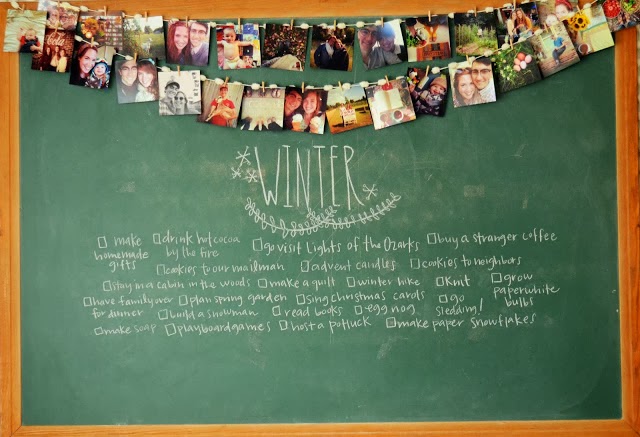 WINTER
☐ make homemade gifts ☐ drink hot cocoa by the fire ☐ go visit Lights of the Ozarks ☐ buy a stranger coffee
☐ cookies to our mailman ☐ advent candles ☐ cookies to neighbors
☐ stay in a cabin in the woods ☐ make a quilt ☐ winter hike ☐ Knit ☐ grow paperwhite bulbs
☐ have family over for dinner ☐ plan spring garden ☐ sing christmas carols ☐ go sledding!
☐ build a snowman ☐ read books ☐ egg nog
☐ make soap ☐ play board games ☐ host a potluck ☐ make paper snowflakes